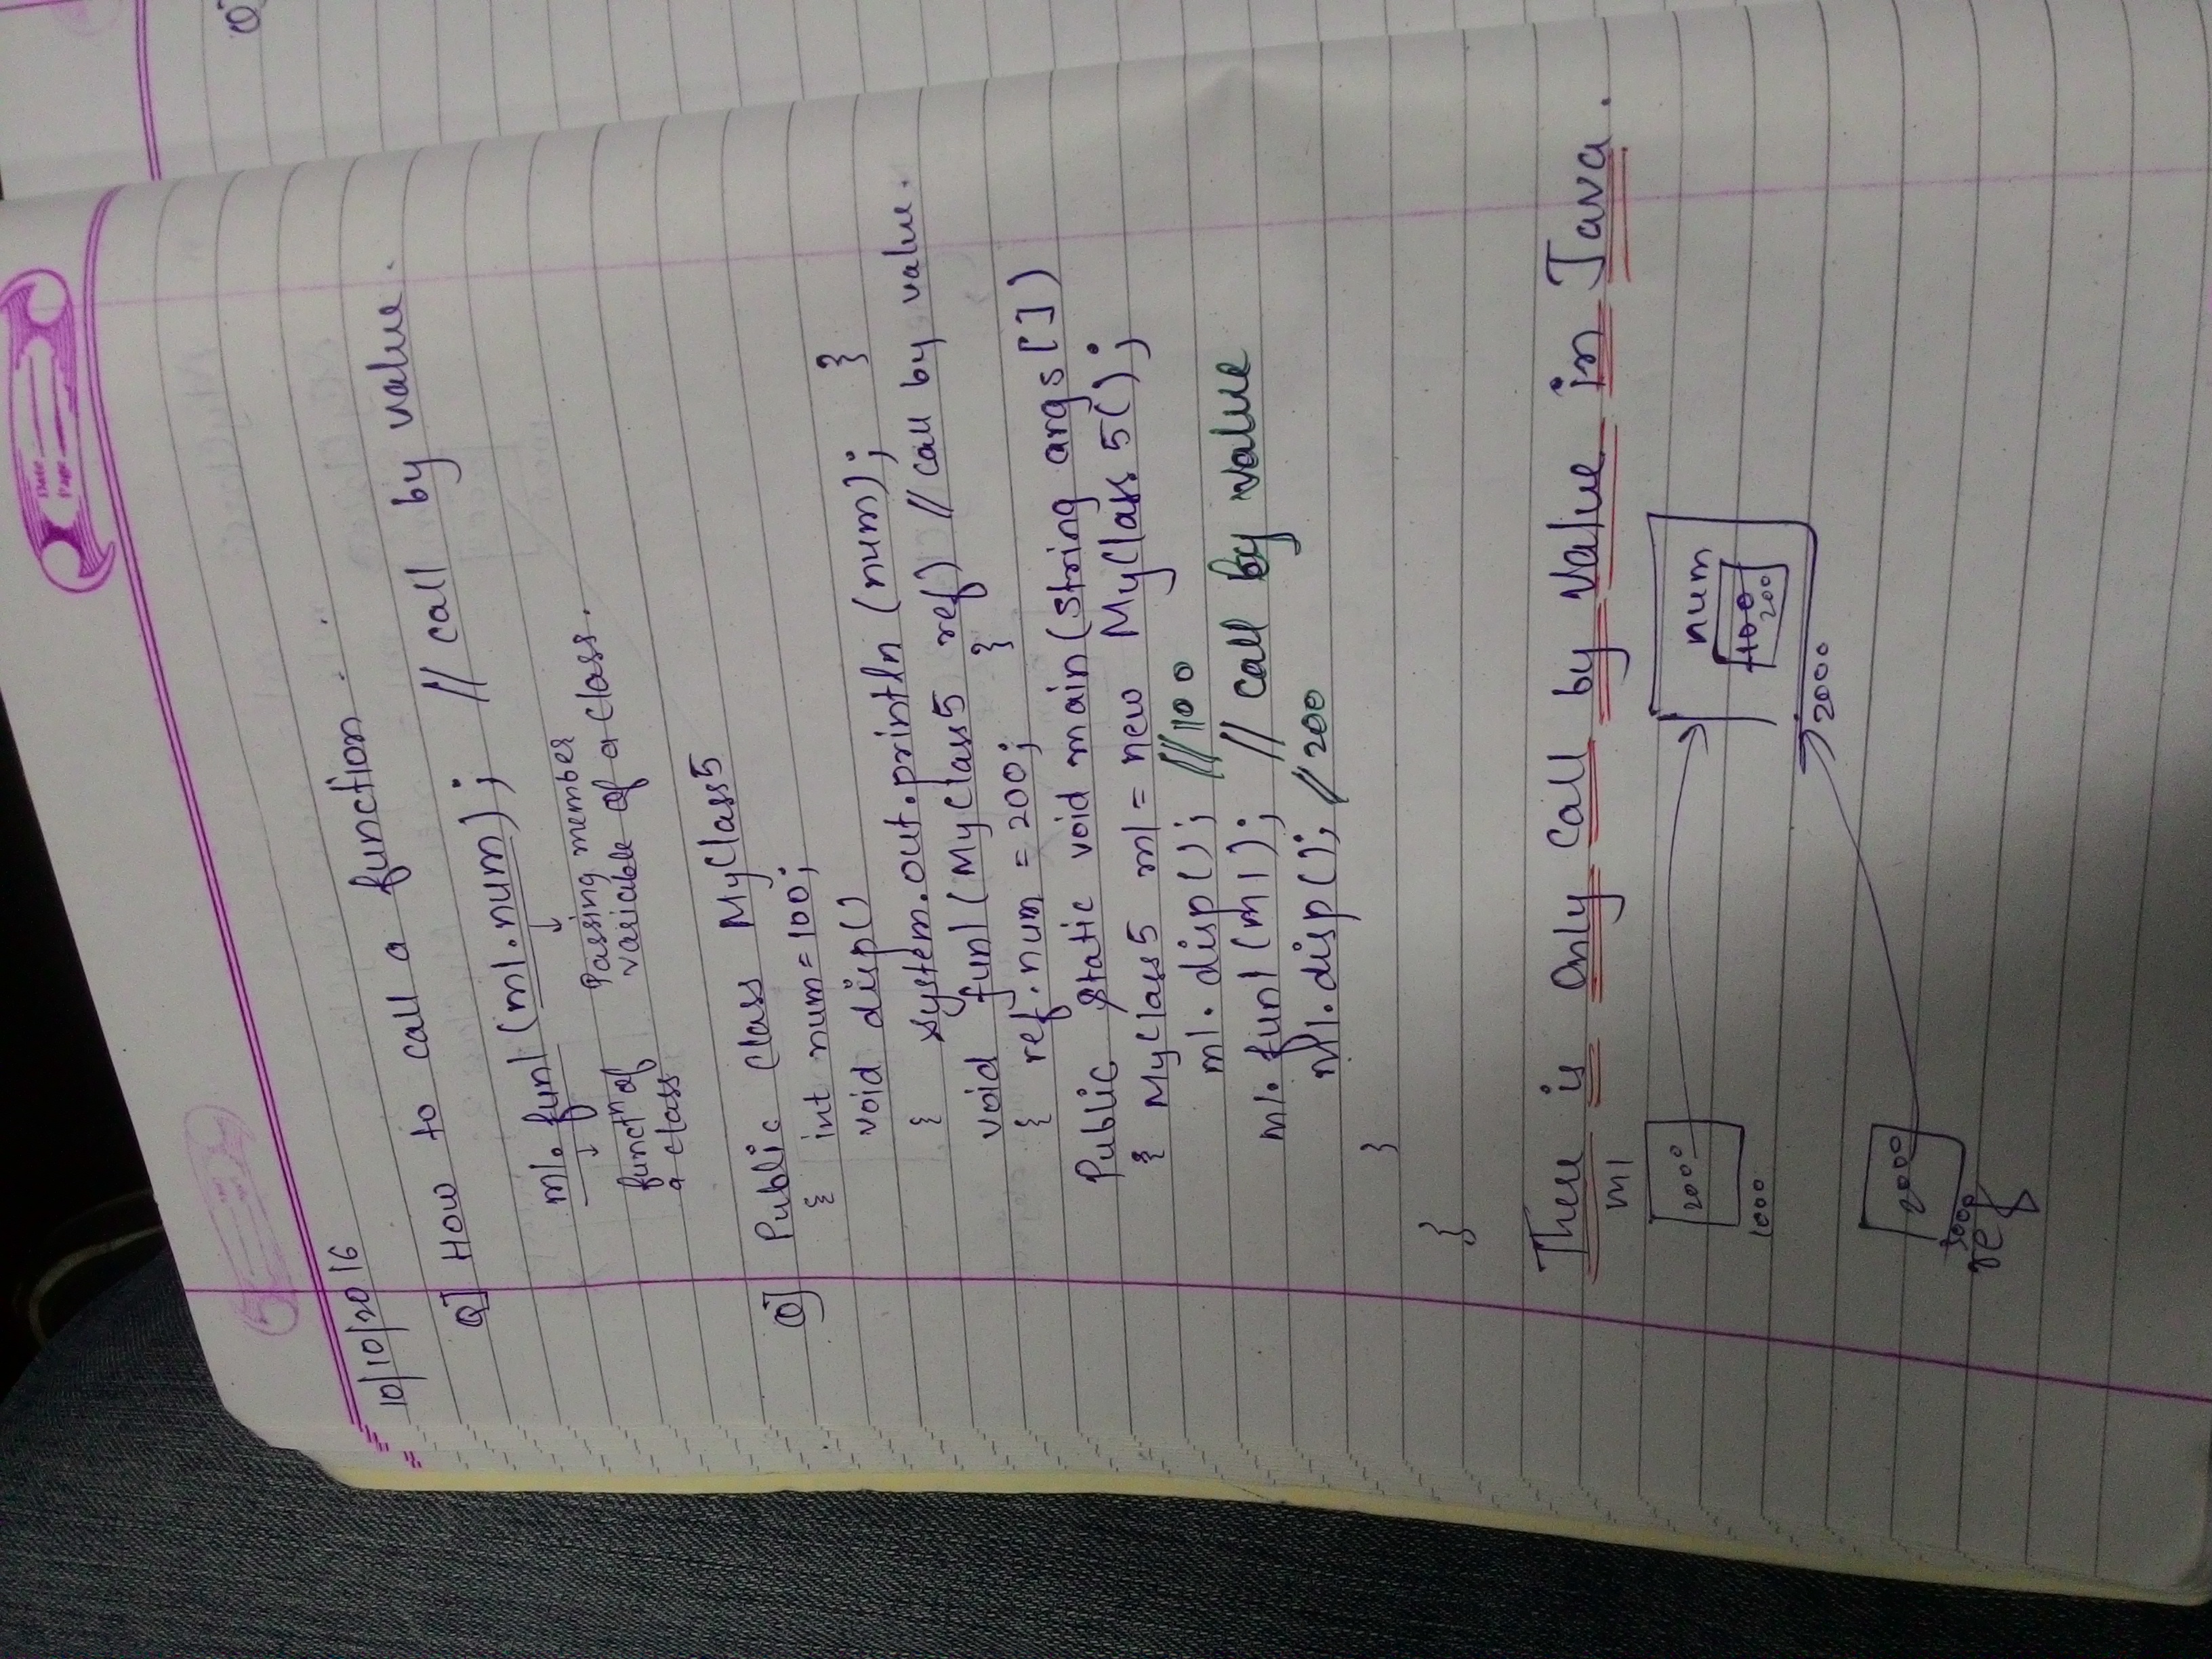 Date
Page
10/10/2016
Q] How to call a function.
m1.fun1(m1.num); // call by value.
functn of
a class
Passing member
variable of a class.
Q] Public Class MyClass5
{ int num=100;
void disp()
{ System.out.println(num); }
void fun1(MyClass5 ref) // call by value.
{ ref.num = 200; }
Public static void main(String args[])
{ MyClass5 m1 = new MyClass5();
m1.disp(); // 100
m1.fun1(m1); // call by value
m1.disp(); // 200
}
}
There is only call by value in Java.
m1
2000
1000
num
100
200
2000
2000
3000
ref